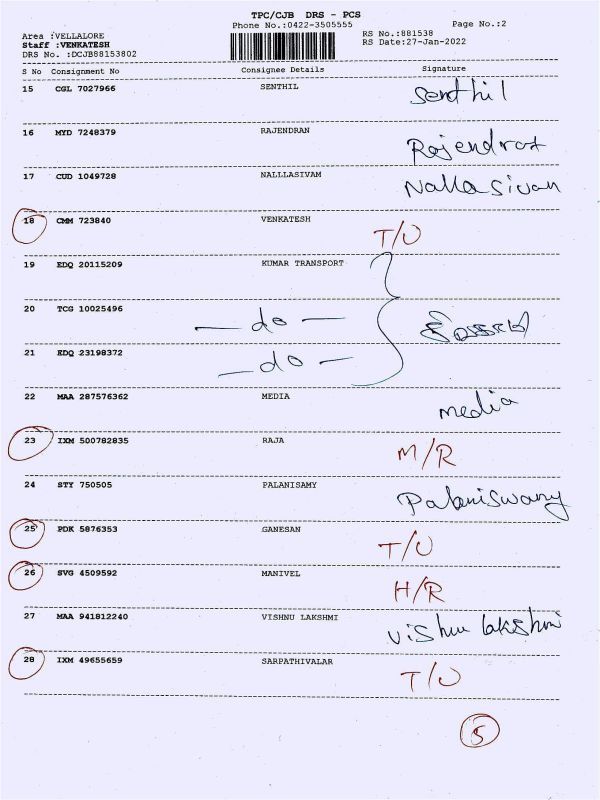 TPC/CJB DRS - PCS
Phone No.:0422-3505555
Page No.:2
Area :VELLALORE
RS No.:881538
Staff :VENKATESH
RS Date:27-Jan-2022
DRS No. :DCJB88153802
S No Consignment No Consignee Details Signature
15 CGL 7027966 SENTHIL Senthil
16 MYD 7248379 RAJENDRAN Rajendran
17 CUD 1049728 NALLLASIVAM Nallasivan
18 CMM 723840 VENKATESH T/O
19 EDQ 20115209 KUMAR TRANSPORT
20 TCG 10025496 — do —
21 EDQ 23198372 — do —
22 MAA 287576362 MEDIA media
23 IXM 500782835 RAJA M/R
24 STY 750505 PALANISAMY Palaniswamy
25 PDK 5876353 GANESAN T/O
26 SVG 4509592 MANIVEL H/R
27 MAA 941812240 VISHNU LAKSHMI Vishnu lakshmi
28 IXM 49655659 SARPATHIVALAR T/O
5